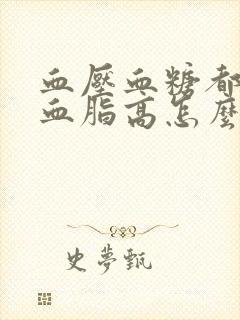 血壓血糖都
血脂高怎麼
史夢甄